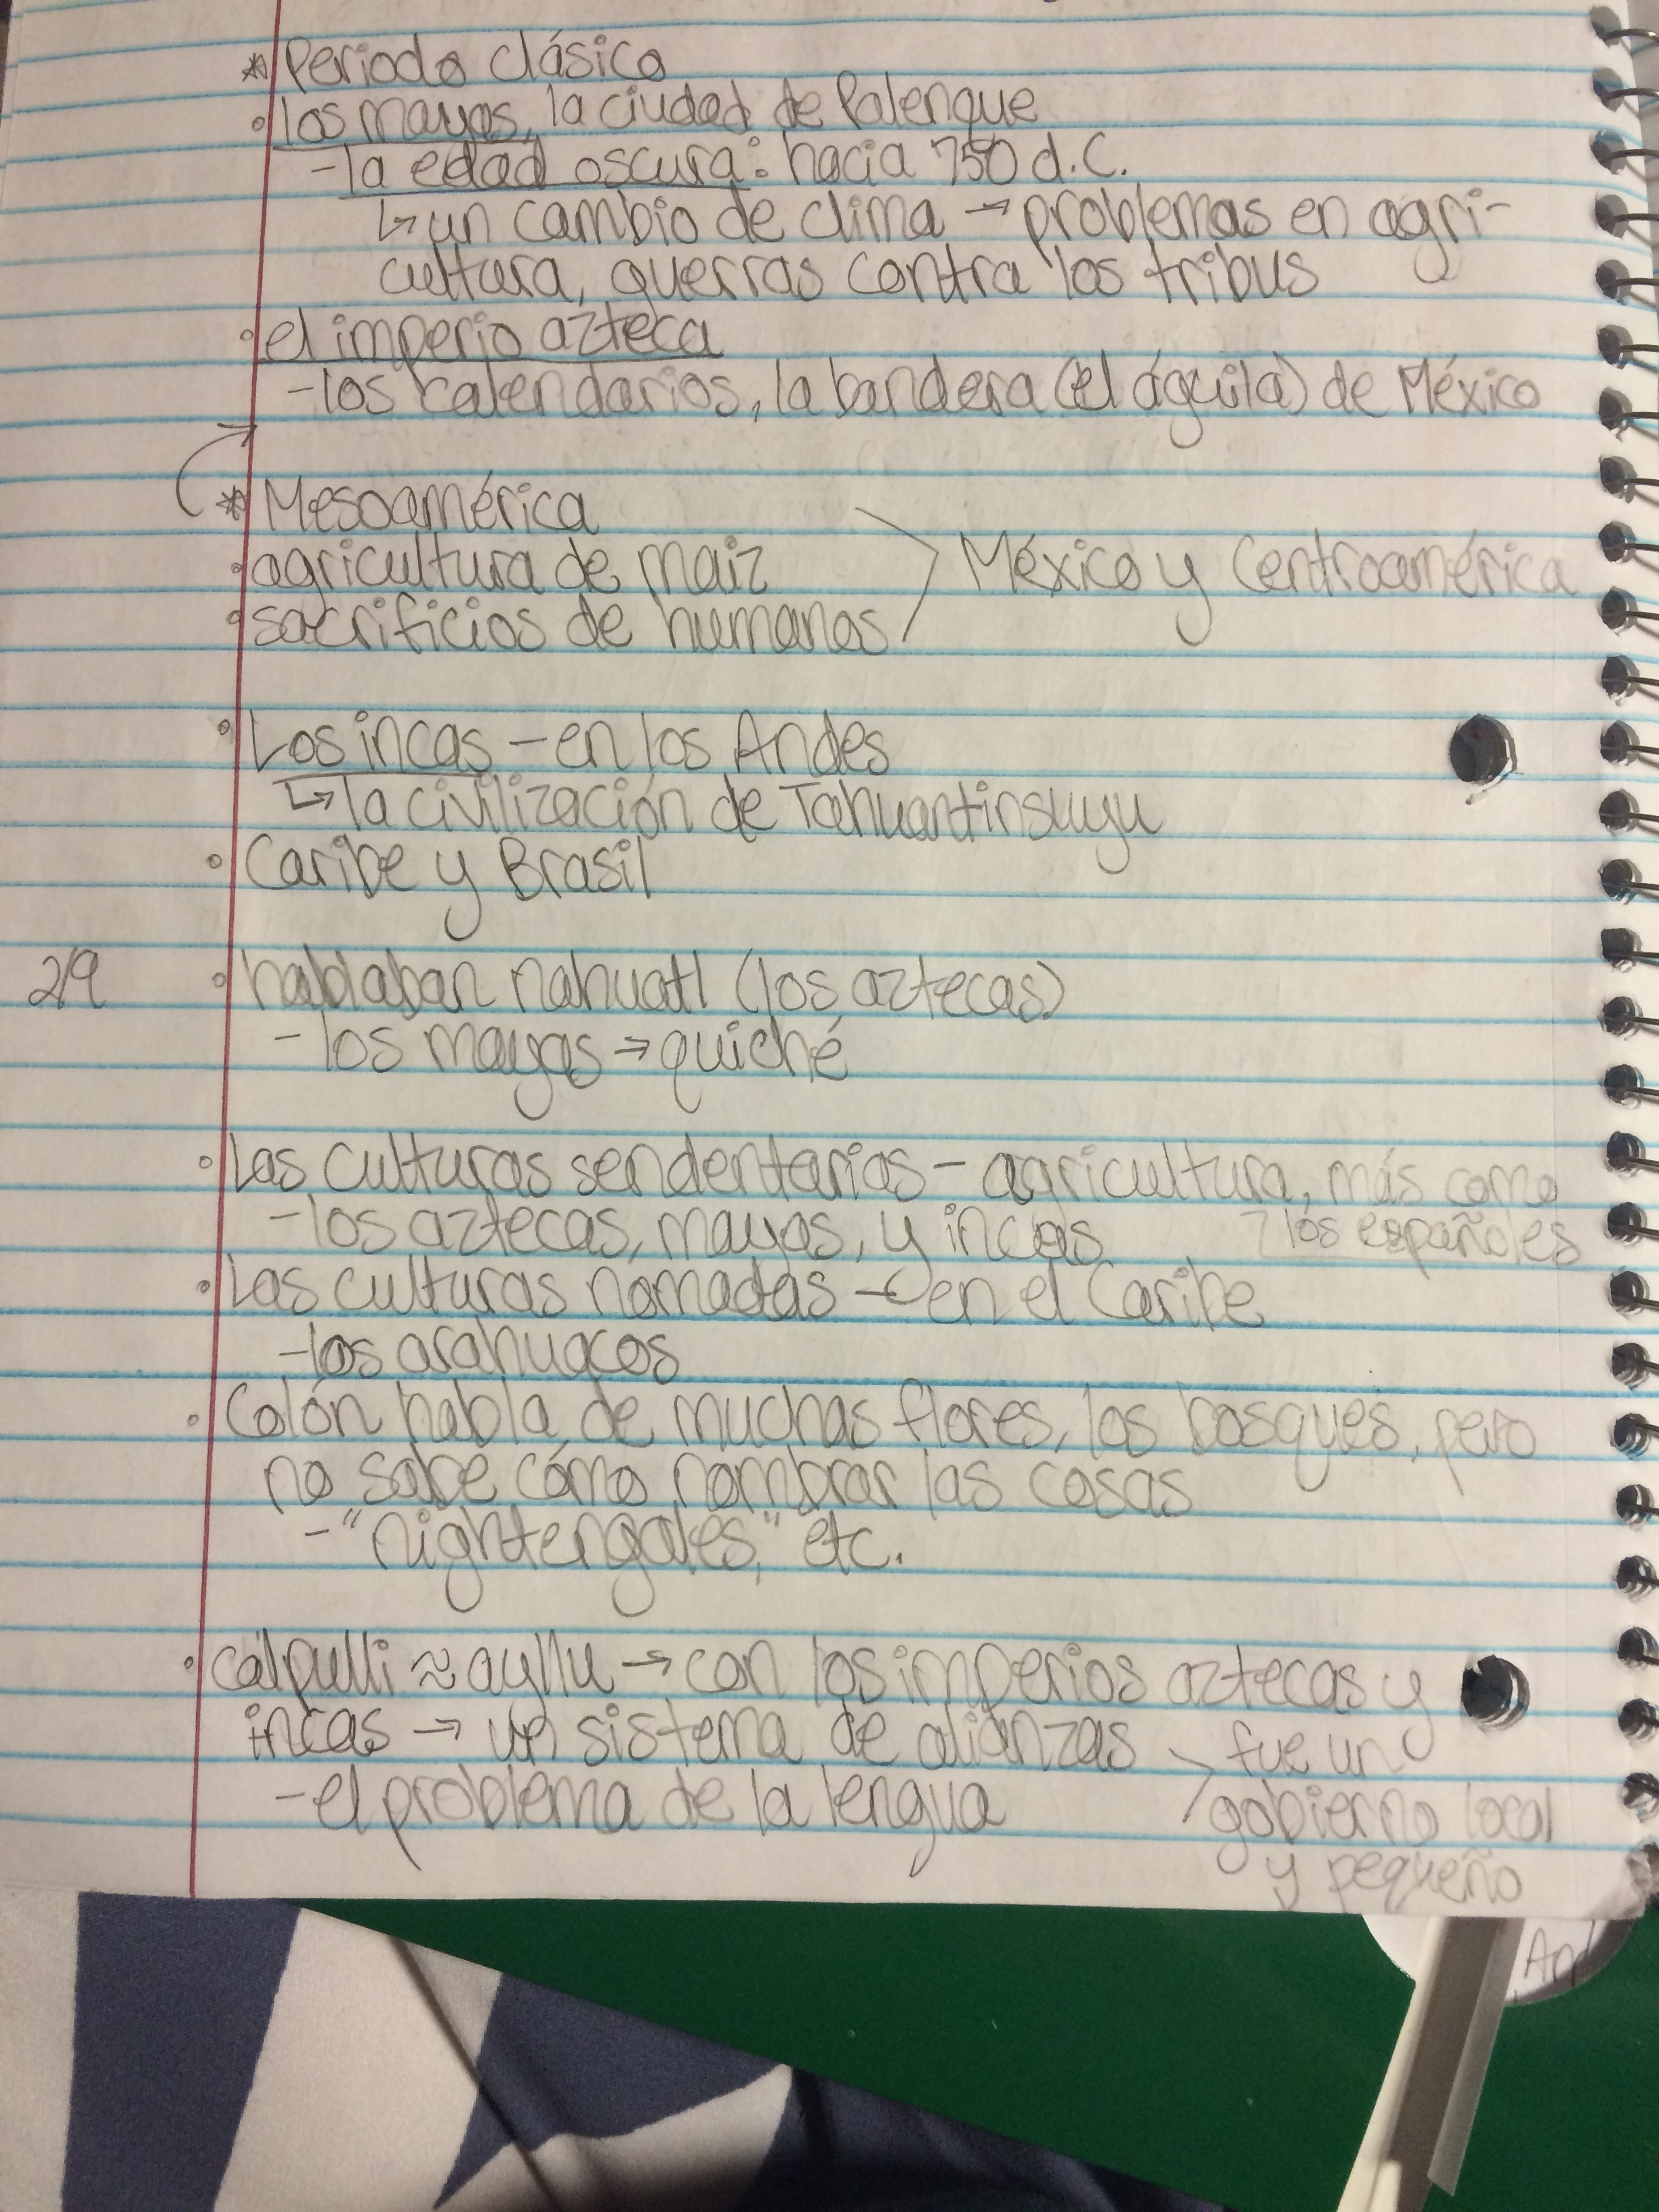 * Periodo clásico
• los mayas, la ciudad de Palenque
- la edad oscura: hacia 750 d.C.
↳ un cambio de clima → problemas en agri-
cultura, guerras contra los tribus
• el imperio azteca
- los calendarios, la bandera (el águila) de México
* Mesoamérica
• agricultura de maiz
• sacrificios de humanos > México y Centroamérica
• Los incas - en los Andes
↳ la civilización de Tahuantinsuyu
• Caribe y Brasil
2/9 • hablaban nahuatl (los aztecas)
- los mayas → quiché
• Las culturas sendentarias - agricultura, más como
- los aztecas, mayas, y incas los españoles
• Las culturas nómadas - en el Caribe
- los arahuacos
• Colón habla de muchas flores, los bosques, pero
no sabe cómo nombrar las cosas
- "nightengales," etc.
• calpulli ≈ ayllu → con los imperios aztecas y
incas → un sistema de alianzas > fue un
- el problema de la lengua gobierno local
y pequeño